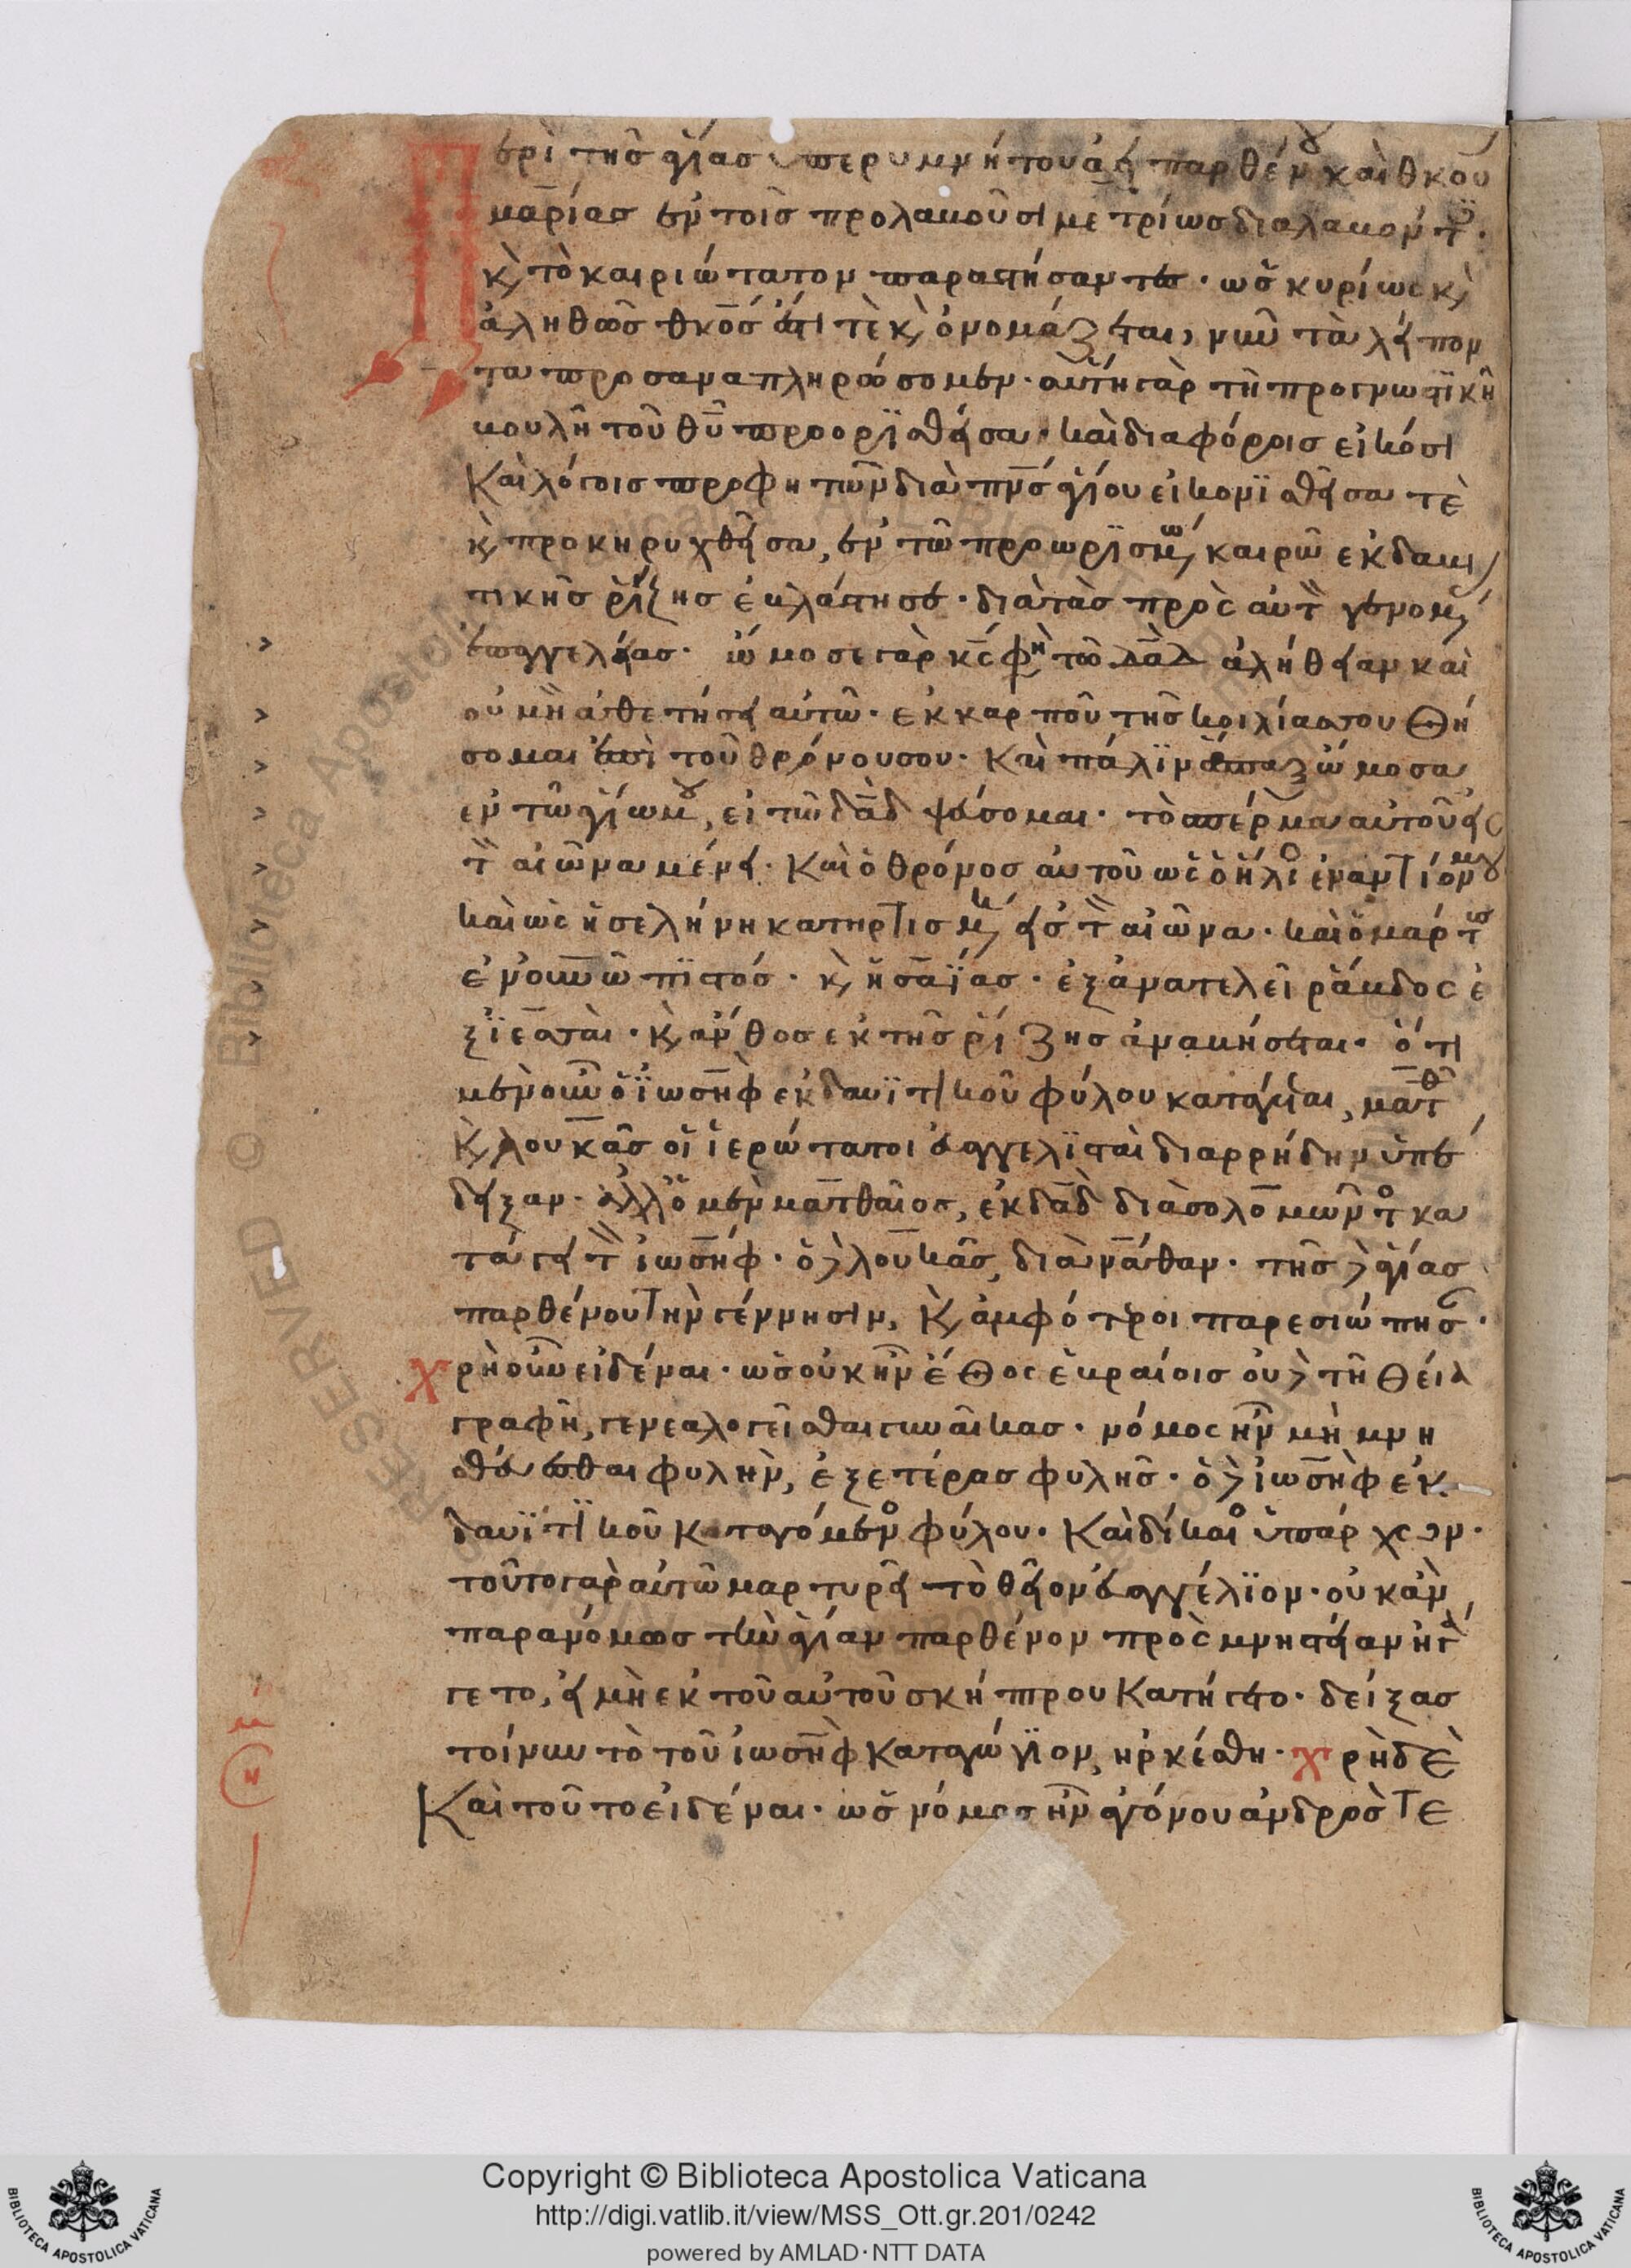 Περὶ τῆς ἁγίας ὑπερυμνήτου ἀεὶ παρθένου καὶ θκου
μαρίας ἐν τοῖς προλαβοῦσι μετρίως διαλαβόντες·
κ τὸ καιριώτατον παραστήσαντες· ὡς κυρίως κ
ἀληθῶς θκος ἐστί τε κ ὀνομάζεται, νῦν τὰ λείπον
τα προσαναπληρώσομεν· αὕτη γὰρ τῇ προγνωστϊκῆ
βουλῆ τοῦ θυ προορϊσθεῖσα· καὶ διαφόροις εἰκόσι
Καὶ λόγοις προφητῶν διὰ πνς ἁγίου εἰκονϊσθεῖσα τὲ
κ προκηρυχθεῖσα, ἐν τῶ προωρϊσμένω καιρῶ ἐκ δαβι
τικῆς ῥίζης ἐβλάστησε· διὰ τὰς πρὸς αὐτὸν γενομένας
ἐπαγγελείας· ὤμοσε γὰρ κς φη τῶ δαδ ἀλήθειαν καὶ
οὐ μὴ ἀθετήσει αὐτῶ· ἐκ καρποῦ τῆς κοιλίας σου Θή
σομαι ἐπὶ τοῦ θρόνου σου· Καὶ πάλϊν ἅπαξ ὤμοσα
ἐν τῶ ἁγίω μου, εἰ τῶ δαδ ψεύσομαι· τὸ σπέρμα αὐτοῦ εἰς
τὸν αἰῶνα μένει· Καὶ ὁ θρόνος αὐτοῦ ὡς ὁ ἥλιος ἐναντίον μου
καὶ ὡς ἡ σελήνη κατηρτισμένη εἰς τὸν αἰῶνα· καὶ ὁ μάρτυς
ἐν οὐνῶ πϊστός· κ ἡσαΐας· ἐξανατελεῖ ῥάβδος ἐ
ξ ϊεσσαὶ· κ ἄνθος ἐκ τῆς ῥίζης ἀναβήσεται· ὅτι
μὲν οὖν ὁ ϊωσὴφ ἐκ δαυϊτικοῦ φύλου κατάγεται, ματθ
κ λουκᾶς οἱ ἱερώτατοι εὐαγγελϊσταὶ διαρρήδην ὑπέ
δειξαν· ἀλλ' ὁ μὲν ματθαῖος, ἐκ δαδ διὰ σολομῶντος κα
τάγει τὸν ἰωσήφ· ὁ δὲ λουκᾶς, διὰ νάθαν· τῆς δὲ ἁγίας
παρθένου τὴν γέννησιν, κ ἀμφότεροι παρεσιώπησαν·
χρὴ οὖν εἰδέναι· ὡς οὐκ ἦν ἔΘος ἑβραίοις οὐδὲ τῆ Θεία
γραφῆ, γενεαλογεῖσθαι γυναῖκας· νόμος ἦν μὴ μνη
στεύεσθαι φυλὴν, ἐξ ετέρας φυλῆς· ὁ δὲ ἰωσὴφ ἐκ
δαυϊτικοῦ καταγόμενος φύλου· Καὶ δίκαιος ὑπάρχων·
τοῦτο γὰρ αὐτῶ μαρτυρεῖ τὸ θεῖον εὐαγγέλϊον· οὐκ ἂν
παρανόμως τὴν ἁγίαν παρθένον πρὸς μνηστείαν ἠγά
γετο, εἰ μὴ ἐκ τοῦ αὐτοῦ σκήπτρου Κατήγετο· δείξας
τοίνυν τὸ τοῦ ἰωσὴφ Καταγώγϊον, ἠρκέσθη· χρὴ δὲ
Καὶ τοῦτο εἰδέναι· ὡς νόμος ἦν ἀγόνου ἀνδρὸς τε
Copyright © Biblioteca Apostolica Vaticana
http://digi.vatlib.it/view/MSS_Ott.gr.201/0242
powered by AMLAD·NTT DATA